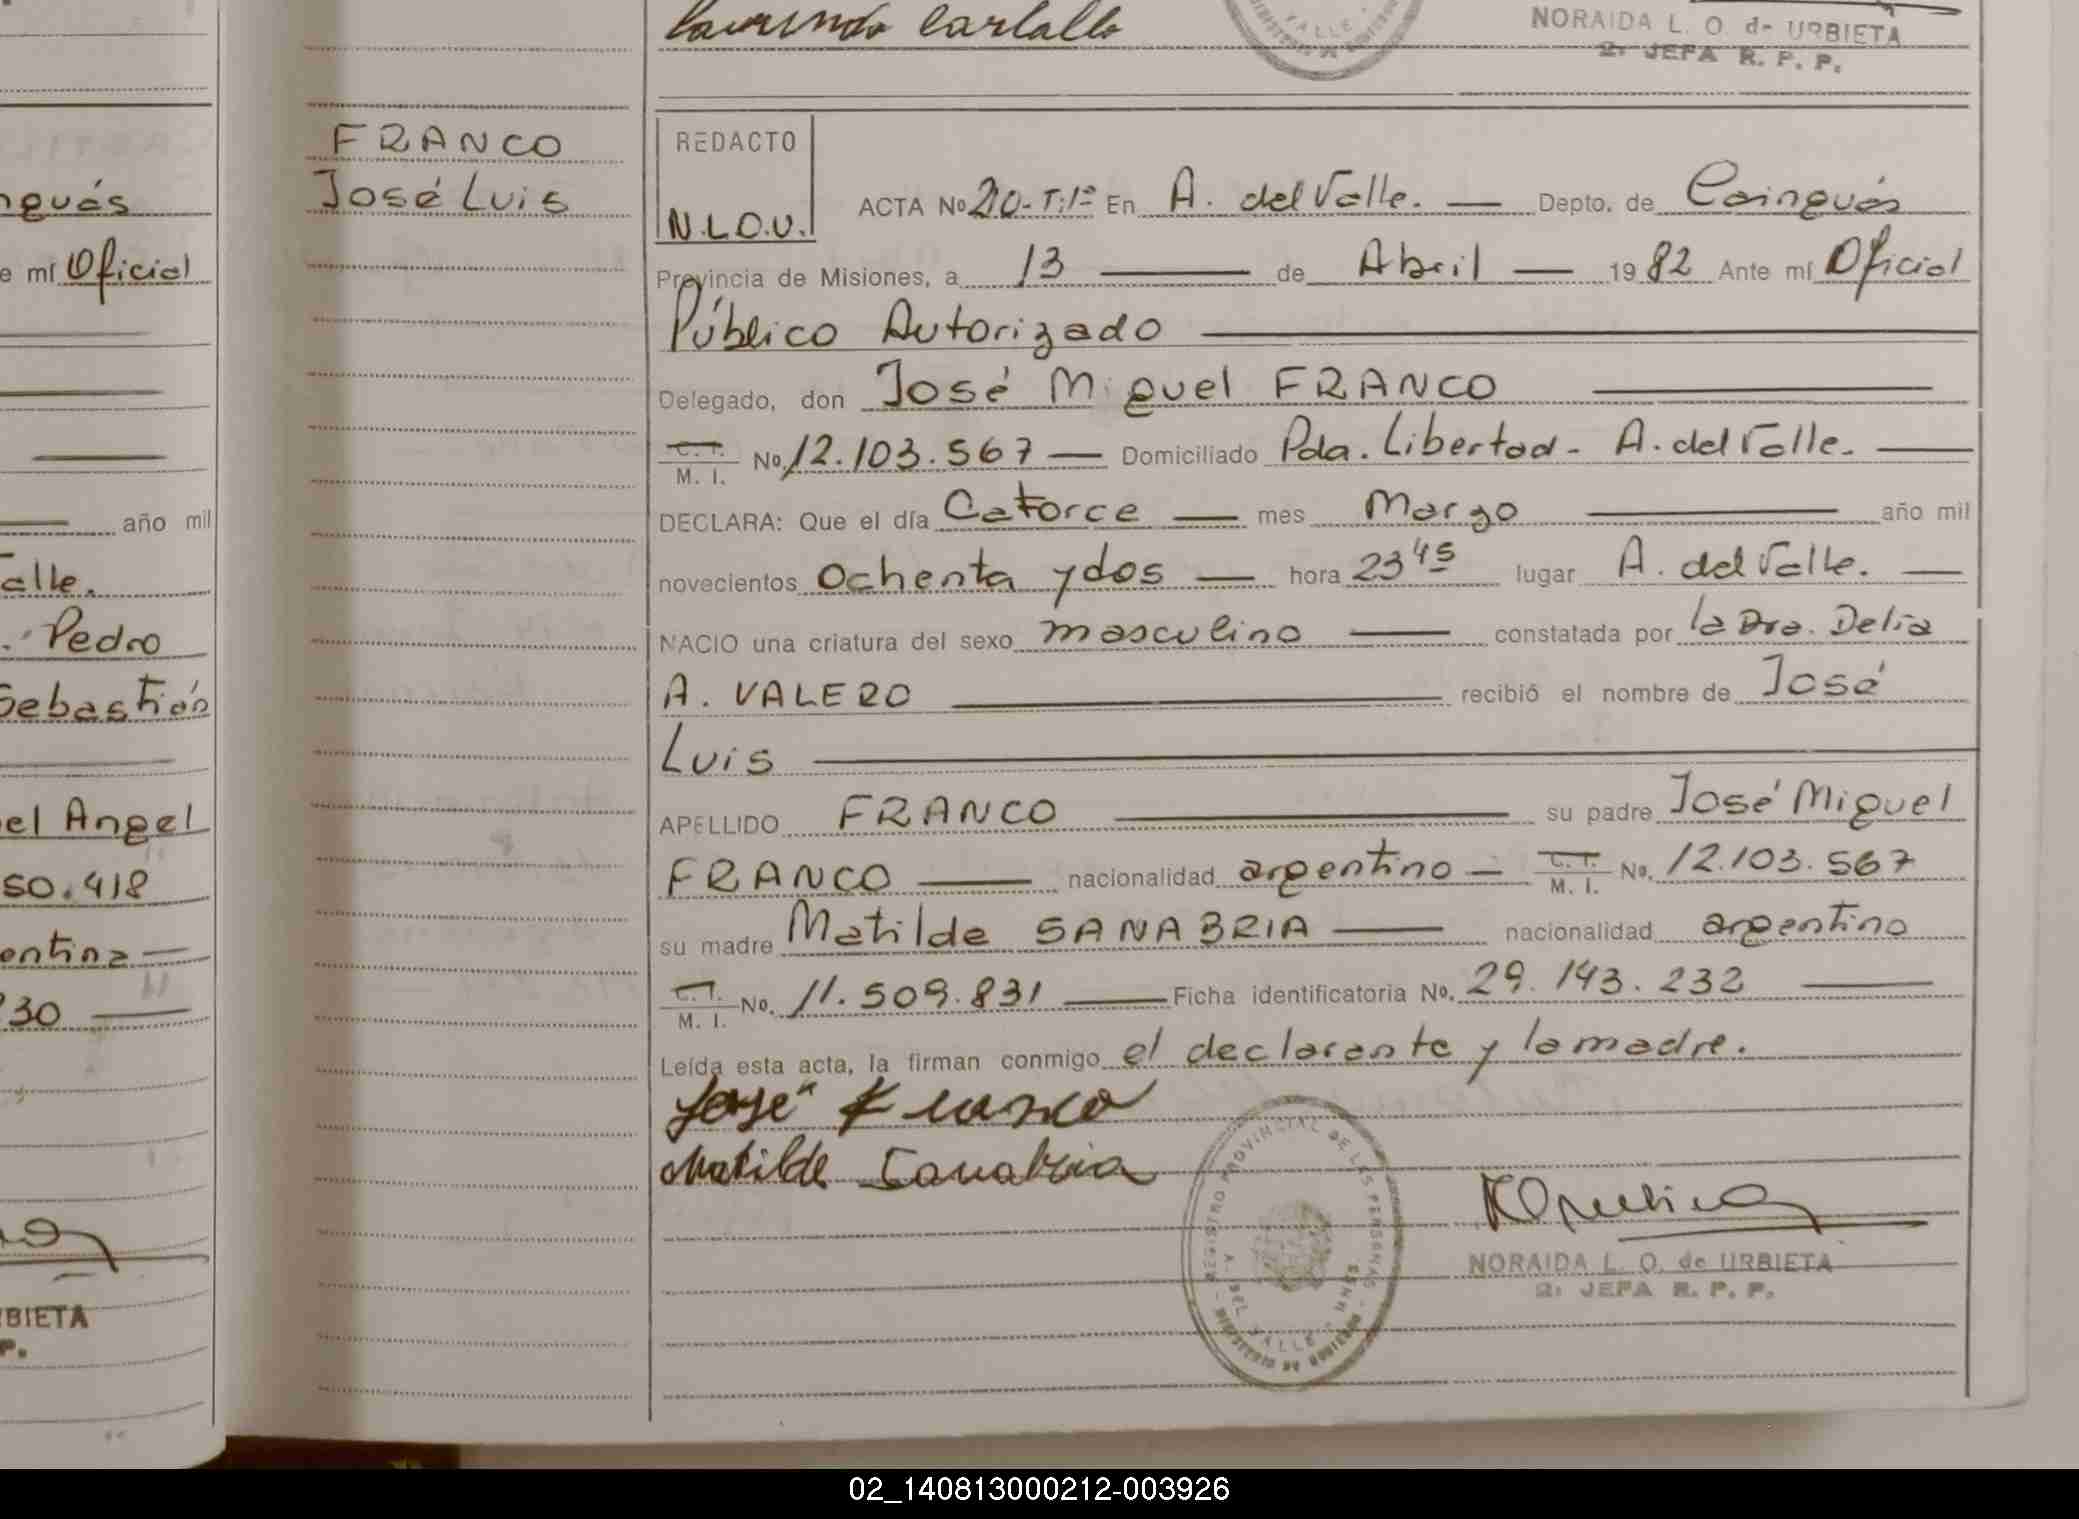 NORAIDA L. O. de URBIETA
2. JEFA R. P. P.
VALLE
nguás
e mí Oficial
año mil
alle.
. Pedro
Sebastián
el Angel
50.418
entina
230
BIETA
P.
FRANCO
José Luis
REDACTO
N.L.O.U.
ACTA No 210-T:1º En A. del Valle. — Depto. de Cainguás
Provincia de Misiones, a 13 — de Abril — 1982 Ante mí Oficial
Público Autorizado —
Delegado, don José Miguel FRANCO —
C. I. M. I. No. 12.103.567 — Domiciliado Pda. Libertad - A. del Valle. —
DECLARA: Que el día Catorce — mes Marzo — año mil
novecientos ochenta y dos — hora 23 45 lugar A. del Valle. —
NACIO una criatura del sexo masculino — constatada por la Dra. Delia
A. VALERO — recibió el nombre de José
Luis —
APELLIDO FRANCO — su padre José Miguel
FRANCO — nacionalidad argentino — C. I. M. I. No. 12.103.567
su madre Matilde SANABRIA — nacionalidad argentino
C. I. M. I. No. 11.509.831 — Ficha identificatoria No. 29.143.232 —
Leída esta acta, la firman conmigo el declarante y la madre.
José Franco
Matilde Sanabria
REGISTRO PROVINCIAL DE LAS PERSONAS
A. DEL VALLE
NORAIDA L. O. de URBIETA
2. JEFA R. P. P.
02_140813000212-003926